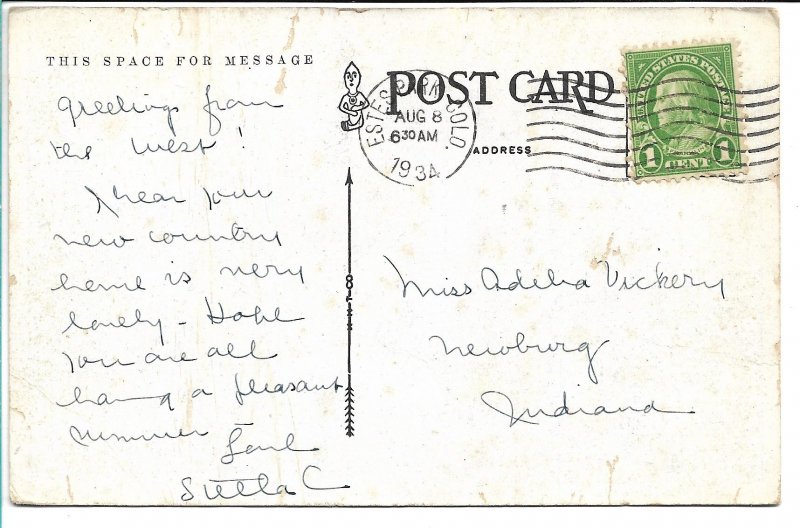 THIS SPACE FOR MESSAGE
Greetings from
the West!
I hear your
new country
home is very
lovely - Hope
you are all
having a pleasant
summer Love
Stella C
POST CARD
ADDRESS
ESTES PARK, COLO.
AUG 8
6 30 AM
1934
UNITED STATES POSTAGE
1 CENT 1
Miss Adelia Vickery
Newburg
Indiana